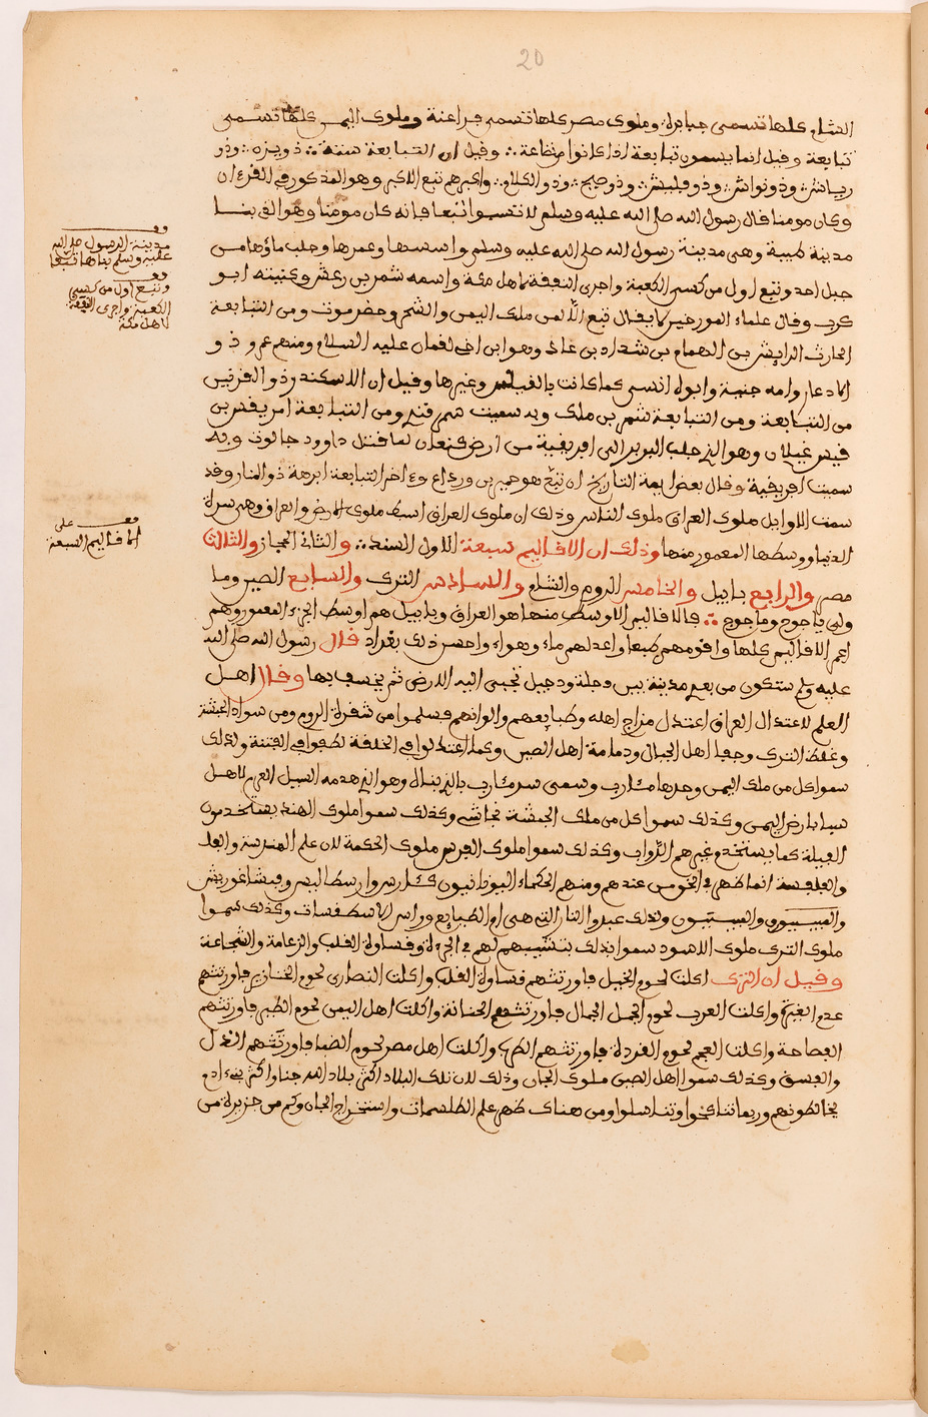 20
الشام كلها تسمى جبابرة وملوك مصر كلها تسمى فراعنة وملوك اليمن كلها تسمى
تبابعة وقيل انما يسمون تبابعة اذا كانوا وقيل ان التبابعة ستة ذو يزن وذو
رياش وذو نواش وذو وذو وذو الكلاع واكبرهم تبع الاكبر وهو المذكور في القرءان
وكان مومنا قال رسول الله صلى الله عليه وسلم لا تسبوا تبعا فإنه كان مومنا وهو الذي بنا
مدينة طيبة وهي مدينة رسول الله صلى الله عليه وسلم واسسها وعمرها وجلب ماؤها من
جبل احد وتبع اول من كسى الكعبة واجرى النفقة لاهل مكة واسمه شمر بن رعش وكنيته ابو
كرب وقال علماء المورخين لا يقال تبع الا لمن ملك اليمن والشحر وحضرموت ومن التبابعة
الحارث الرايش بن الهمام بن شداد بن عاد وهو ابن اخي لقمان عليه السلام ومنهم عمرو ذو
الادعار وامه جنية وابوه انسي كما كانت بالقيس وغيرها وقيل ان الاسكندر ذو القرنين
من التبابعة ومن التبابعة شمر بن ملك وبه سميت سمرقند ومن التبابعة افريقش بن
قيس غيلان وهو الذي جلب البربر الى افريقية من ارض كنعان لما قتل داوود جالوت وبه
سميت افريقية وقال بعض ايمة التاريخ ان تبع هو حمير بن وءاخر التبابعة ابرهة ذو المنار وقد
سمت الاوايل ملوك العراق ملوك الناس وذلك ان ملوك العراق اسط ملوك الارض والعراق وهي سرة
الدنيا ووسطها المعمور منها وذلك ان الاقاليم سبعة الاول السند والثاني الحجاز والثالث
مصر والرابع بابيل والخامس الروم والشام والسادس الترك والسابع الصين وما
ولي ياجوج وماجوج فالاقاليم الاوسط منها هو العراق وبابيل هم اوسط الجزء المعمور وهم
اعم الاقاليم كلها واقومهم طبعا واعدلهم ماء وهواء واحسن ذلك بغداد قال رسول الله صلى الله
عليه وسلم ستكون من بعدي مدينة بين دجلة ودجيل تجبى اليه الارض ثم يخسف بها وقال اهل
العلم لاعتدال العراق اعتدل مزاج اهله وطبايعهم والوانهم فسلموا من شقرة الروم ومن سواد الحبشة
وغلظ الترك وجفا اهل الجبال ودمامة اهل الصين وكما اعتدلوا في الخلقة لطفوا في الفتنة وكذلك
سموا كل من ملك اليمن وحدها مارب وسمى سد مارب وهو الذي هدمه السيل العرم لاهل
سبا بارض اليمن وكذلك سموا كل من ملك الحبشة نجاشي وكذلك سموا ملوك الهند يستخدمون
الفيلة كما يستخدم غيرهم الدواب وكذلك سموا ملوك الفرس ملوك الحكمة لان علم الهندسة والفلك
والفلسفة انما ظهر في الخو من عندهم ومنهم الحكماء اليونانيون وفيشاغوريش
ولذلك عبدوا النار التي هي ام الطبايع وراس الاسطقسات وكذلك سموا
ملوك الترك ملوك الاسود سموا بذلك بتشبيههم لهم في الجرءة وقساوة القلب والزعامة والشجاعة
وقيل ان الترك اكلت لحوم الخيل فاورثتهم قساوة القلب واكلت النصارى لحوم الخنازير فاورثتهم
عدم الغيرة واكلت العرب لحوم الجمل الجمال فاورثتهم واكلت اهل اليمن لحوم الظبي فاورثتهم
الفصاحة واكلت العجم لحوم القردة فاورثتهم واكلت اهل مصر لحوم فاورثتهم الذل
والفسق وكذلك سموا اهل الصين ملوك الجان وذلك لان تلك البلاد اكثر بلاد الله جنا واكثر بنوا ادم
يخالطونهم وربما تناكحوا وتناسلوا ومن هناك ظهر علم الطلسمات واستخراج الجان وكم من جزيرة من
قف
مدينة الرسول صلى الله
عليه وسلم بناها تبع
قف
وتبع اول من كسى
الكعبة واجرى النفقة
لاهل مكة
قف على
الاقاليم السبعة